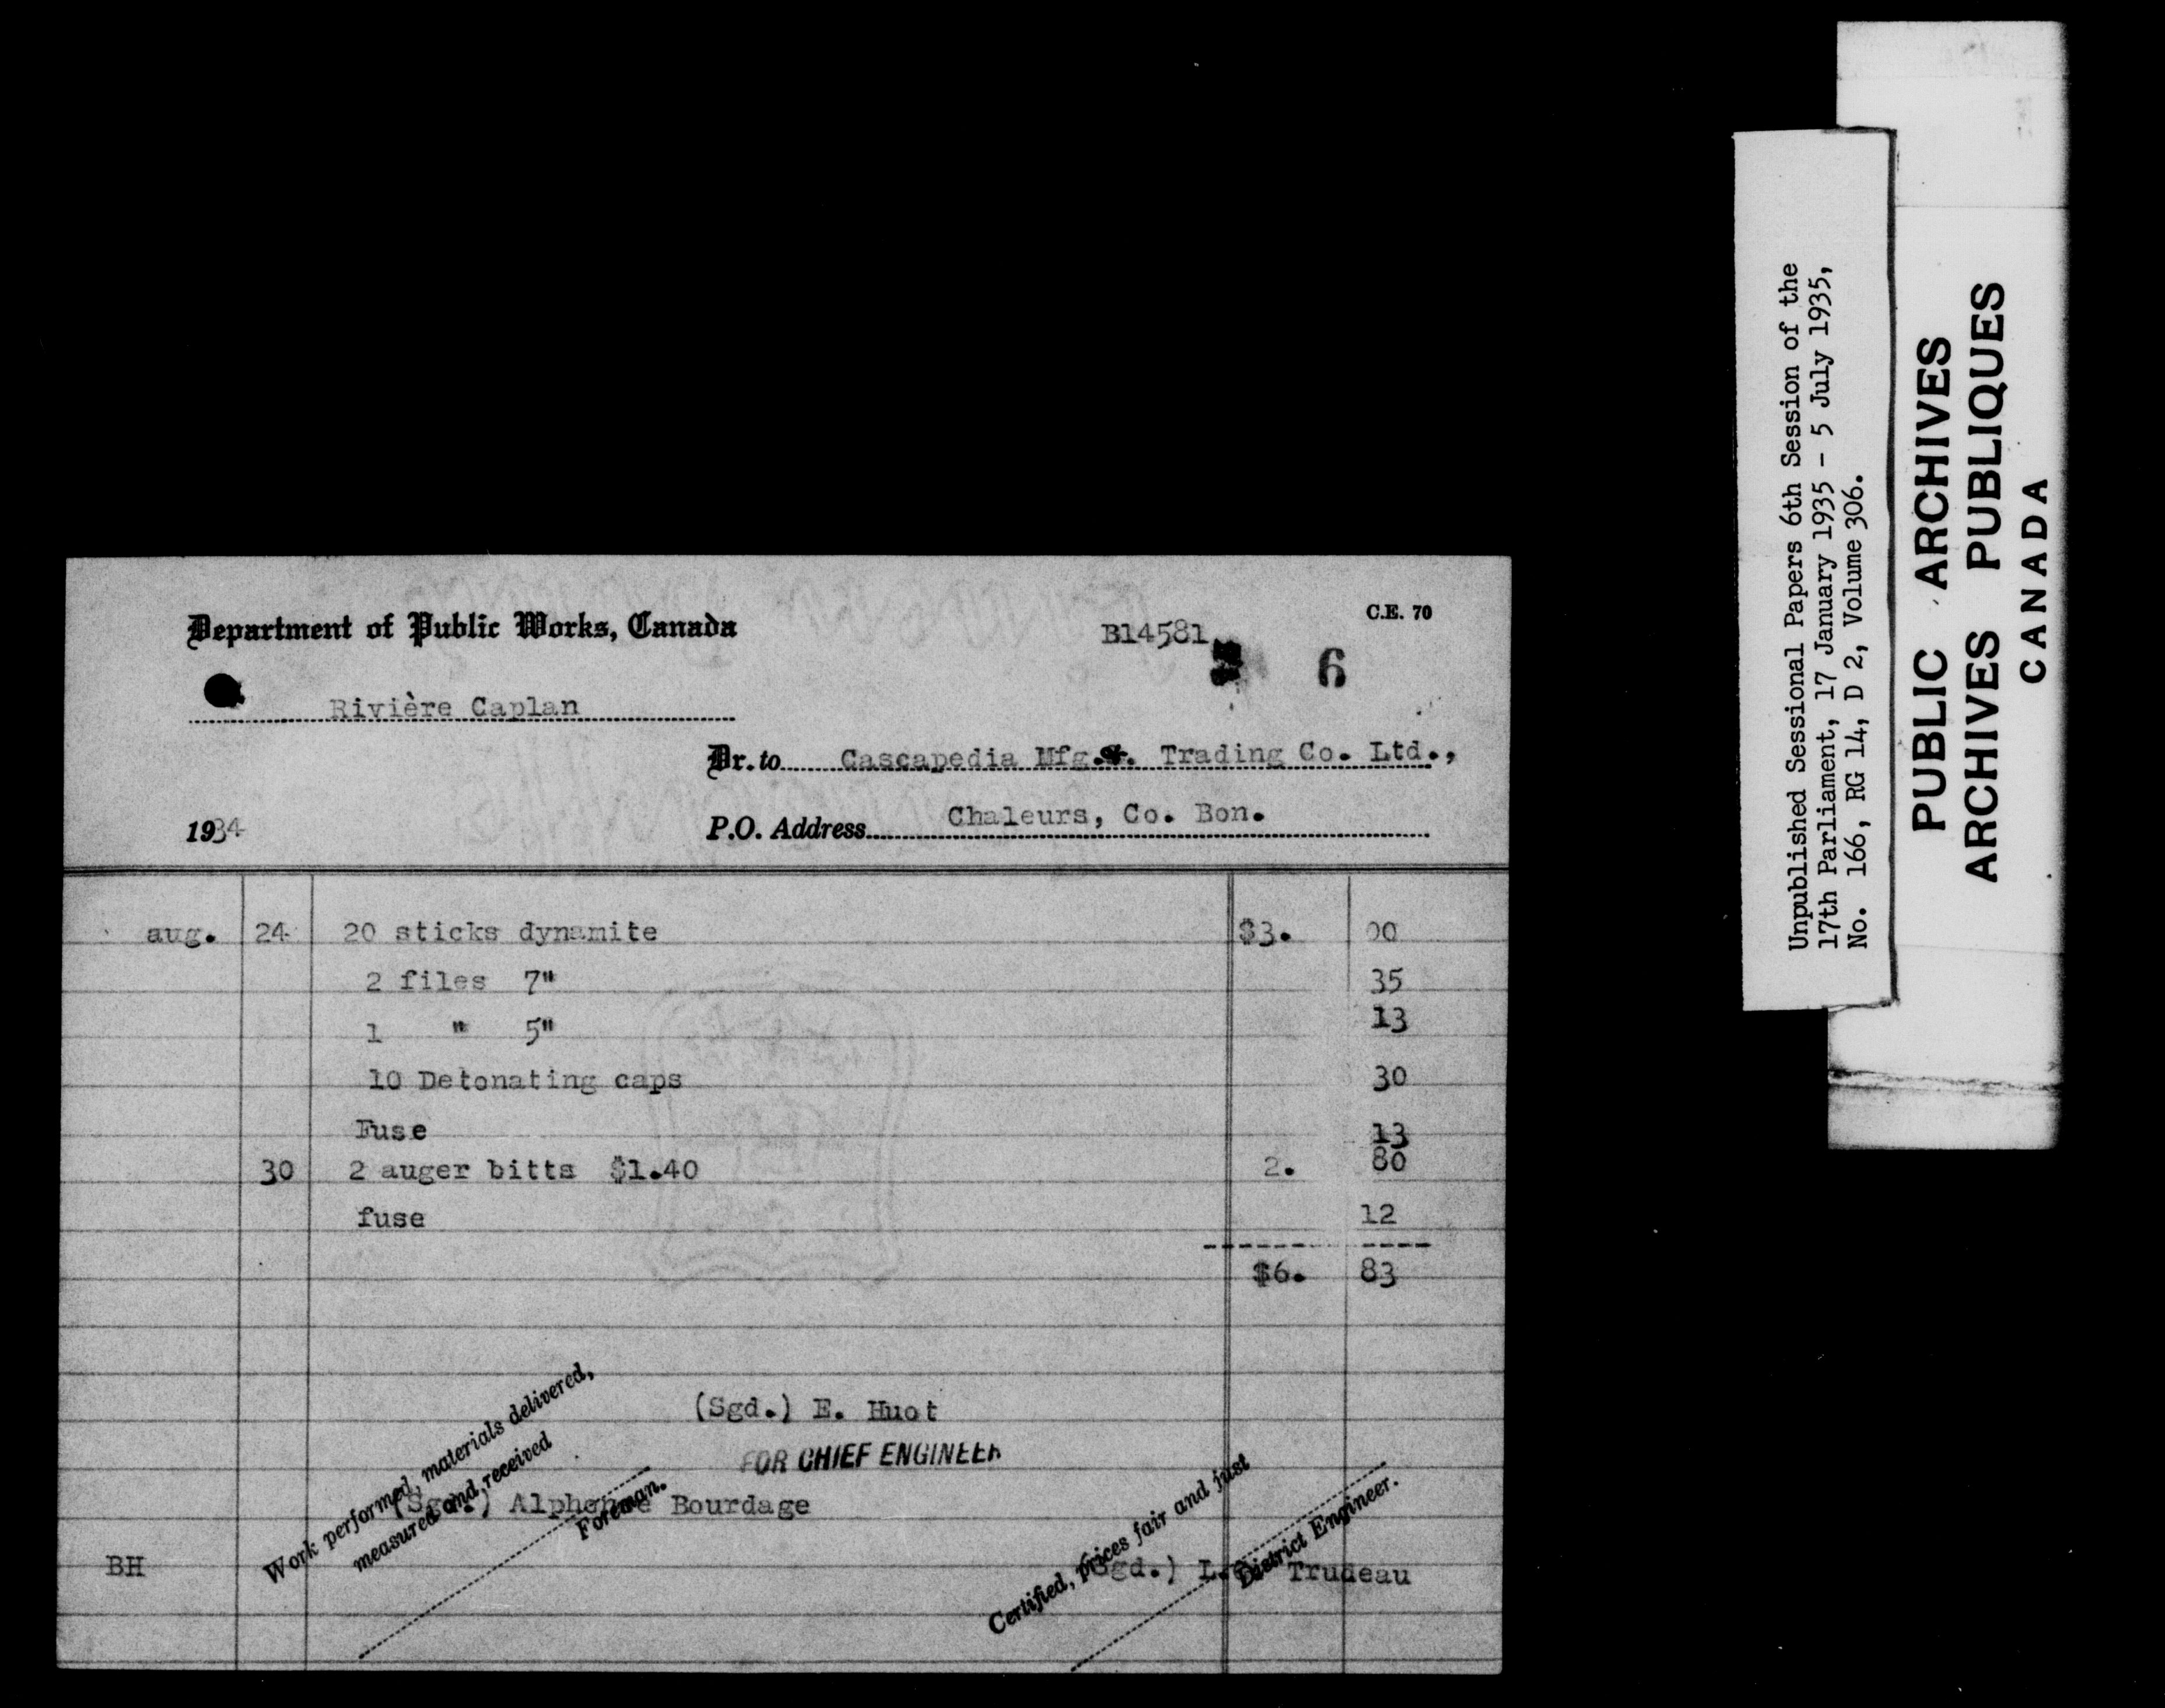 Department of Public Works, Canada
B14581
C.E. 70
6
Rivière Caplan
Dr. to Cascapedia Mfg. &. Trading Co. Ltd.,
1934
P.O. Address Chaleurs, Co. Bon.
aug. 24 20 sticks dynamite $3. 00
2 files 7" 35
1 " 5" 13
10 Detonating caps 30
Fuse 13
30 2 auger bitts $1.40 2. 80
fuse 12
$6. 83
(Sgd.) E. Huot
FOR CHIEF ENGINEER
Work performed, materials delivered,
measured and received
(Sgd.) Alphonse Bourdage
Foreman.
Certified, prices fair and just
(Sgd.) L. Trudeau
District Engineer.
BH
Unpublished Sessional Papers 6th Session of the
17th Parliament, 17 January 1935 - 5 July 1935,
No. 166, RG 14, D 2, Volume 306.
PUBLIC ARCHIVES
ARCHIVES PUBLIQUES
CANADA